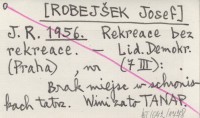 [ROBEJŠEK Josef]
J. R. 1956. Rekreace bez
rekreace. — Lid. Demokr.
(Praha) , nr (7 III): .
Brak miejsc w schronis
kach tatrz. Wini za to TANAP.